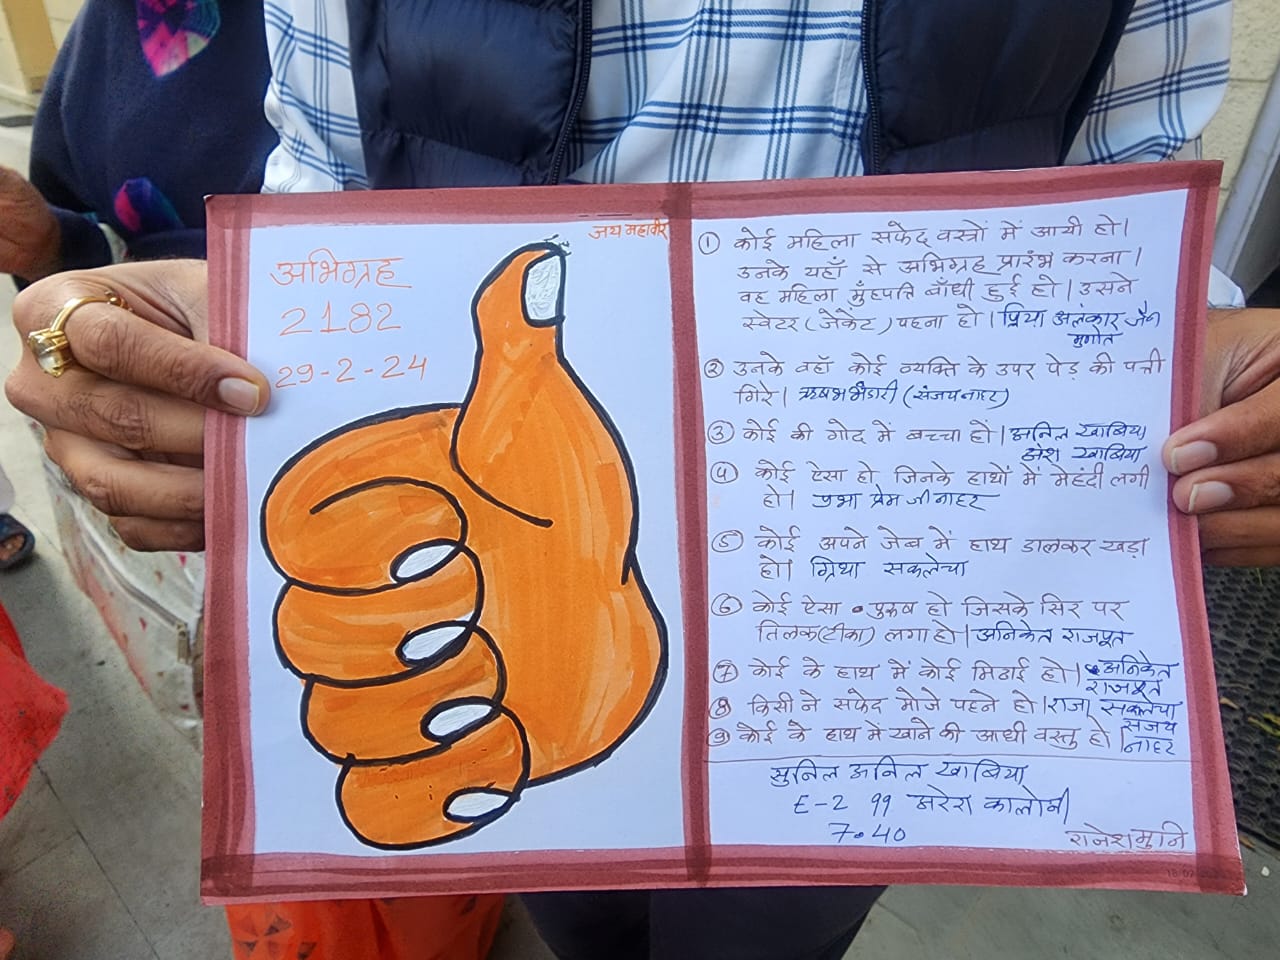 जय महावीर
अभिग्रह
2182
29-2-24
① कोई महिला सफेद वस्त्रों में आयी हो।
उनके यहाँ से अभिग्रह प्रारंभ करना।
वह महिला मुँहपत्ति बाँधी हुई हो। उसने
स्वेटर (जेकेट) पहना हो। प्रिया अलंकार जैन
मुणोत
② उनके वहाँ कोई व्यक्ति के उपर पेड़ की पत्ती
गिरे। ऋषभ भंडारी (संजय नाहर)
③ कोई की गोद में बच्चा हो। अनिल खाबिया
खाबिया
④ कोई ऐसा हो जिनके हाथों में मेहंदी लगी
हो। प्रभा प्रेम जी नाहर
⑤ कोई अपने जेब में हाथ डालकर खड़ा
हो। ग्रिथा सकलेचा
⑥ कोई ऐसा पुरुष हो जिसके सिर पर
तिलक(टीका) लगा हो। अनिकेत राजपूत
⑦ कोई के हाथ में कोई मिठाई हो। अनिकेत
राजपूत
⑧ किसी ने सफेद मोजे पहने हो। राजा सकलेचा
⑨ कोई के हाथ में खाने की आधी वस्तु हो। संजय
नाहर
सुनिल अनिल खाबिया
E-2 99 अरेरा कालोनी
7.40
राजेशमुनि